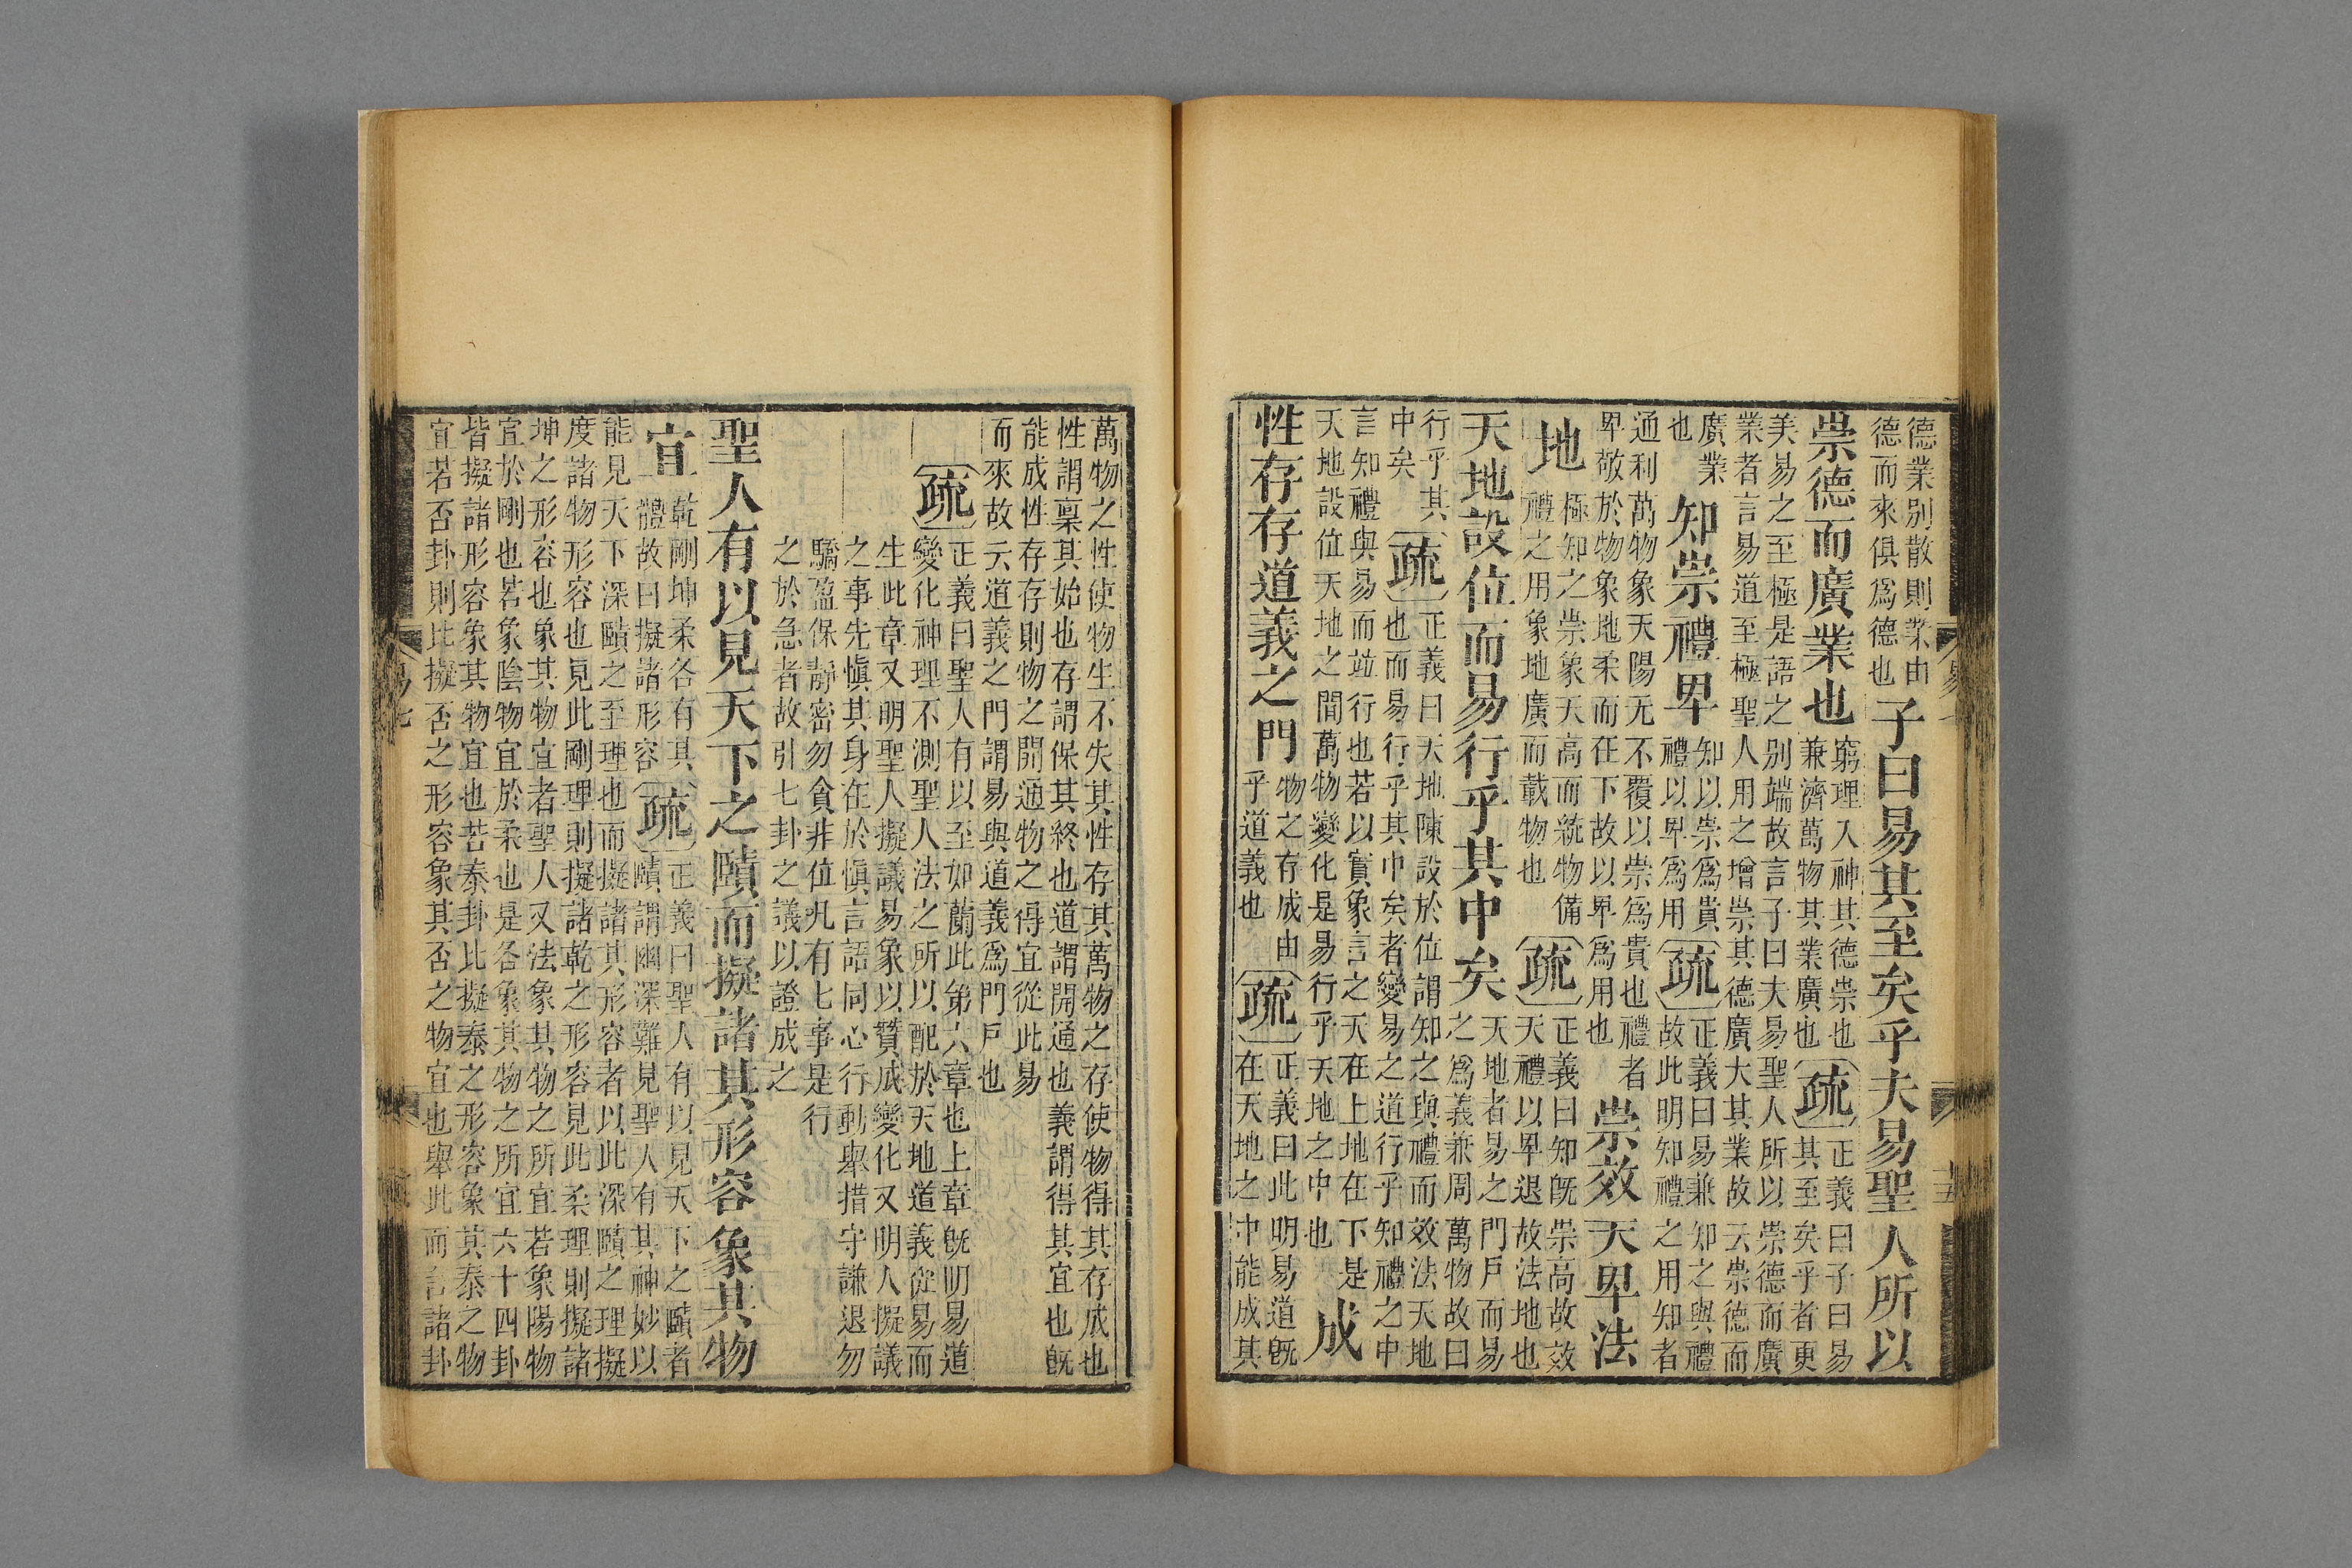 德業别散則業由
德而來俱爲德也
子曰易其至矣乎夫易聖人所以
崇德而廣業也
窮理入神其德崇也
兼濟萬物其業廣也
疏
正義曰子曰易
其至矣乎者更
美易之至極是語之别端故言子曰夫易聖人所以崇德而廣
業者言易道至極聖人用之增崇其德廣大其業故云崇德而
廣業
也
知崇禮卑
知以崇爲貴
禮以卑爲用
疏
正義曰易兼知之與禮
故此明知禮之用知者
通利萬物象天陽无不覆以崇爲貴也禮者
卑敬於物象地柔而在下故以卑爲用也
崇效天卑法
地
極知之崇象天高而統物備
禮之用象地廣而載物也
疏
正義曰知旣崇高故效
天禮以卑退故法地也
天地設位而易行乎其中矣
天地者易之門戶而易
之爲義兼周萬物故曰
行乎其
中矣
疏
正義曰天地陳設於位謂知之與禮而效法天地
也而易行乎其中矣者變易之道行乎知禮之中
言知禮與易而竝行也若以實象言之天在上地在下是
天地設位天地之間萬物變化是易行乎天地之中也
成
性存存道義之門
物之存成由
乎道義也
疏
正義曰此明易道旣
在天地之中能成其
萬物之性使物生不失其性存其萬物之存使物得其存成也
性謂稟其始也存謂保其終也道謂開通也義謂得其宜也旣
能成性存存則物之開通物之得宜從此易
而來故云道義之門謂易與道義爲門戶也
疏
正義曰聖人有以至如蘭此第六章也上章旣明易道
變化神理不測聖人法之所以配於天地道義從易而
生此章又明聖人擬議易象以贊成變化又明人擬議
之事先愼其身在於愼言語同心行動舉措守謙退勿
驕盈保靜密勿貪非位凡有七事是行
之於急者故引七卦之議以證成之
聖人有以見天下之賾而擬諸其形容象其物
宜
乾剛坤柔各有其
體故曰擬諸形容
疏
正義曰聖人有以見天下之賾者
賾謂幽深難見聖人有其神妙以
能見天下深賾之至理也而擬諸其形容者以此深賾之理擬
度諸物形容也見此剛理則擬諸乾之形容見此柔理則擬諸
坤之形容也象其物宜者聖人又法象其物之所宜若象陽物
宜於剛也若象陰物宜於柔也是各象其物之所宜六十四卦
皆擬諸形容象其物宜也若泰卦比擬泰之形容象其泰之物
宜若否卦則比擬否之形容象其否之物宜也舉此而言諸卦
易七